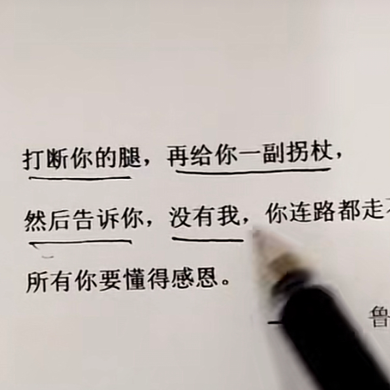 打断你的腿，再给你一副拐杖，
然后告诉你，没有我，你连路都走
所有你要懂得感恩。
鲁